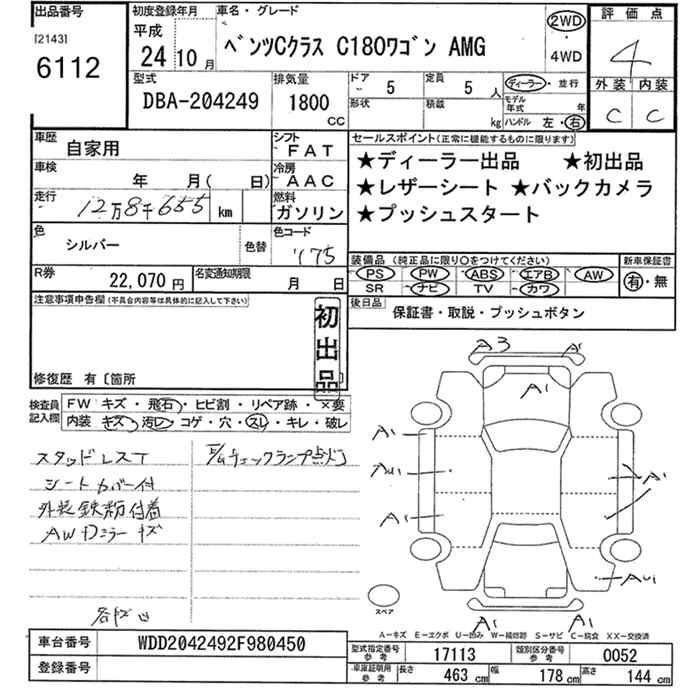 出品番号
[2143]
6112
初度登録年月
平成
24 10 月
車名・グレード
ベンツCクラス C180ワゴン AMG
2WD
・
4WD
評価点
4
外装 内装
C C
型式
DBA-204249
排気量
1800 CC
ドア 5
形状
定員 5 人
積載 kg
ディーラー・並行
モデル年式 年
ハンドル 左・右
車歴 自家用
シフト FAT
車検 年 月( 日)
冷房 AAC
走行 12万8千655 km
燃料 ガソリン
色 シルバー 色替
色コード 775
R券 22,070 円
名変通知期限 月 日
セールスポイント(正常に機能するものに限ります)
★ディーラー出品 ★初出品
★レザーシート ★バックカメラ
★プッシュスタート
装備品 (純正品に限り○をつけてください)
PS PW ABS エアB AW
SR ナビ TV カワ
新車保証書
有・無
後日品 保証書・取説・プッシュボタン
注意事項申告欄(不具合内容等は具体的に記入して下さい)
初出品
修復歴 有〔箇所 〕
検査員記入欄
FW キズ・飛石・ヒビ割・リペア跡・×要
内装 キズ・汚レ・コゲ・穴・スレ・キレ・破レ
スタッドレスT
シートカバー付
外装鉄粉付着
AW Dミラーキズ
チェックランプ点灯
A3 A1
A1
A1
AU1
A1
A1
AU1
A1 A1
スペア
A-キズ E-エクボ U-凹み W-補修跡 S-サビ C-腐食 XX-交換済
車台番号 WDD2042492F980450
登録番号
型式指定番号 参考 17113
類別区分番号 参考 0052
車庫証明用 参考 長さ 463 cm 幅 178 cm 高さ 144 cm